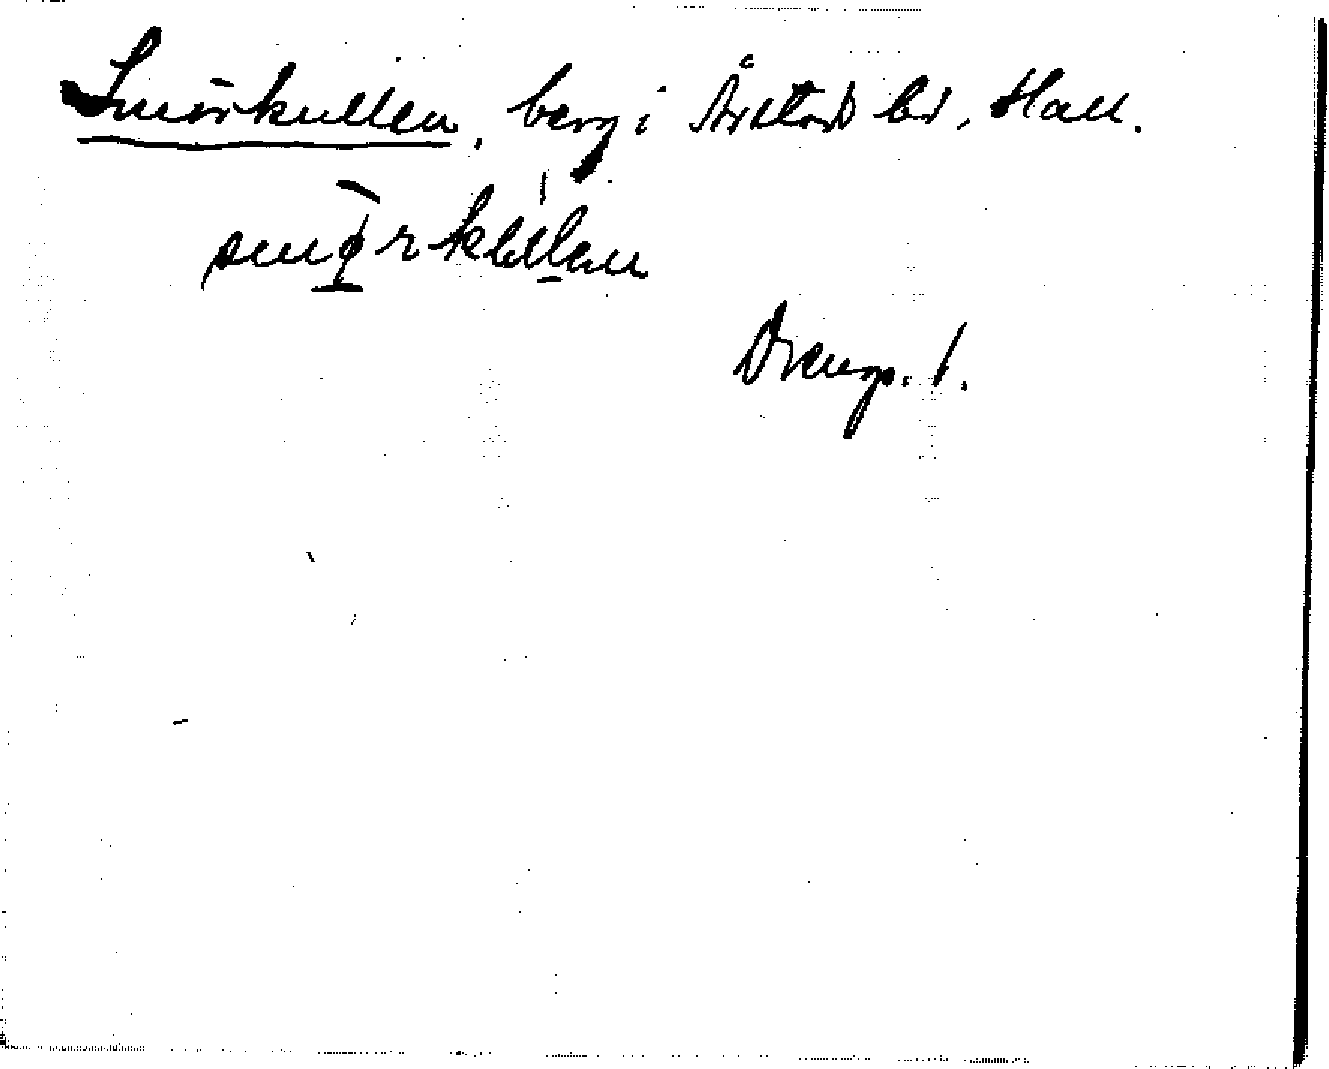 Smörkullen, berg i Årstads hd, Hall.
smø̱̀rkúl̠en
Drengs. 1.